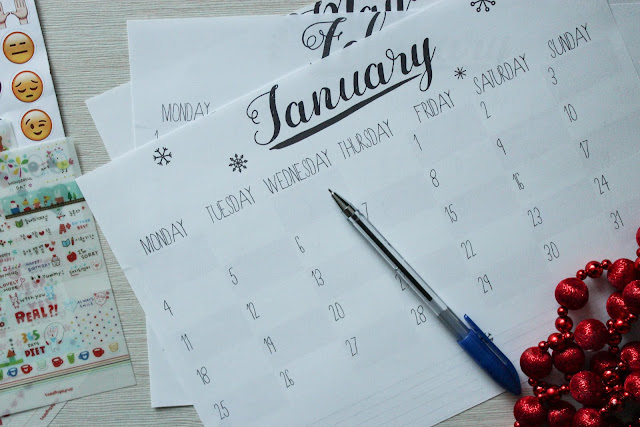 May
Feb
MONDAY
January
MONDAY TUESDAY WEDNESDAY THURSDAY FRIDAY SATURDAY SUNDAY
1 2 3
4 5 6 7 8 9 10
11 12 13 15 16 17
18 19 20 22 23 24
25 26 27 28 29 30 31
SORRY
REAL?!
365
DIET